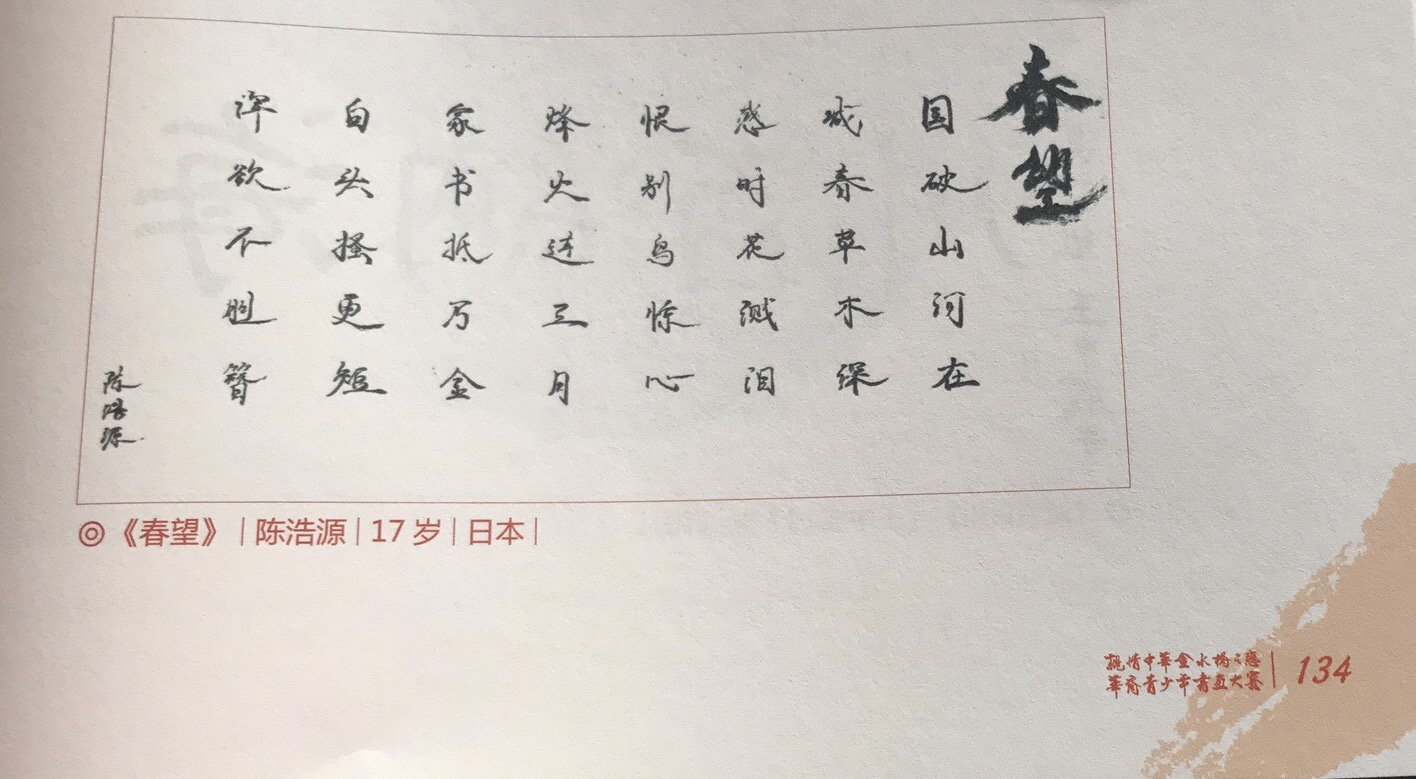 春望
国破山河在
城春草木深
感时花溅泪
恨别鸟惊心
烽火连三月
家书抵万金
白头搔更短
浑欲不胜簪
陈浩源
◎《春望》|陈浩源|17岁|日本|
親情中華金水橋之戀
華裔青少年書畫大賽|134